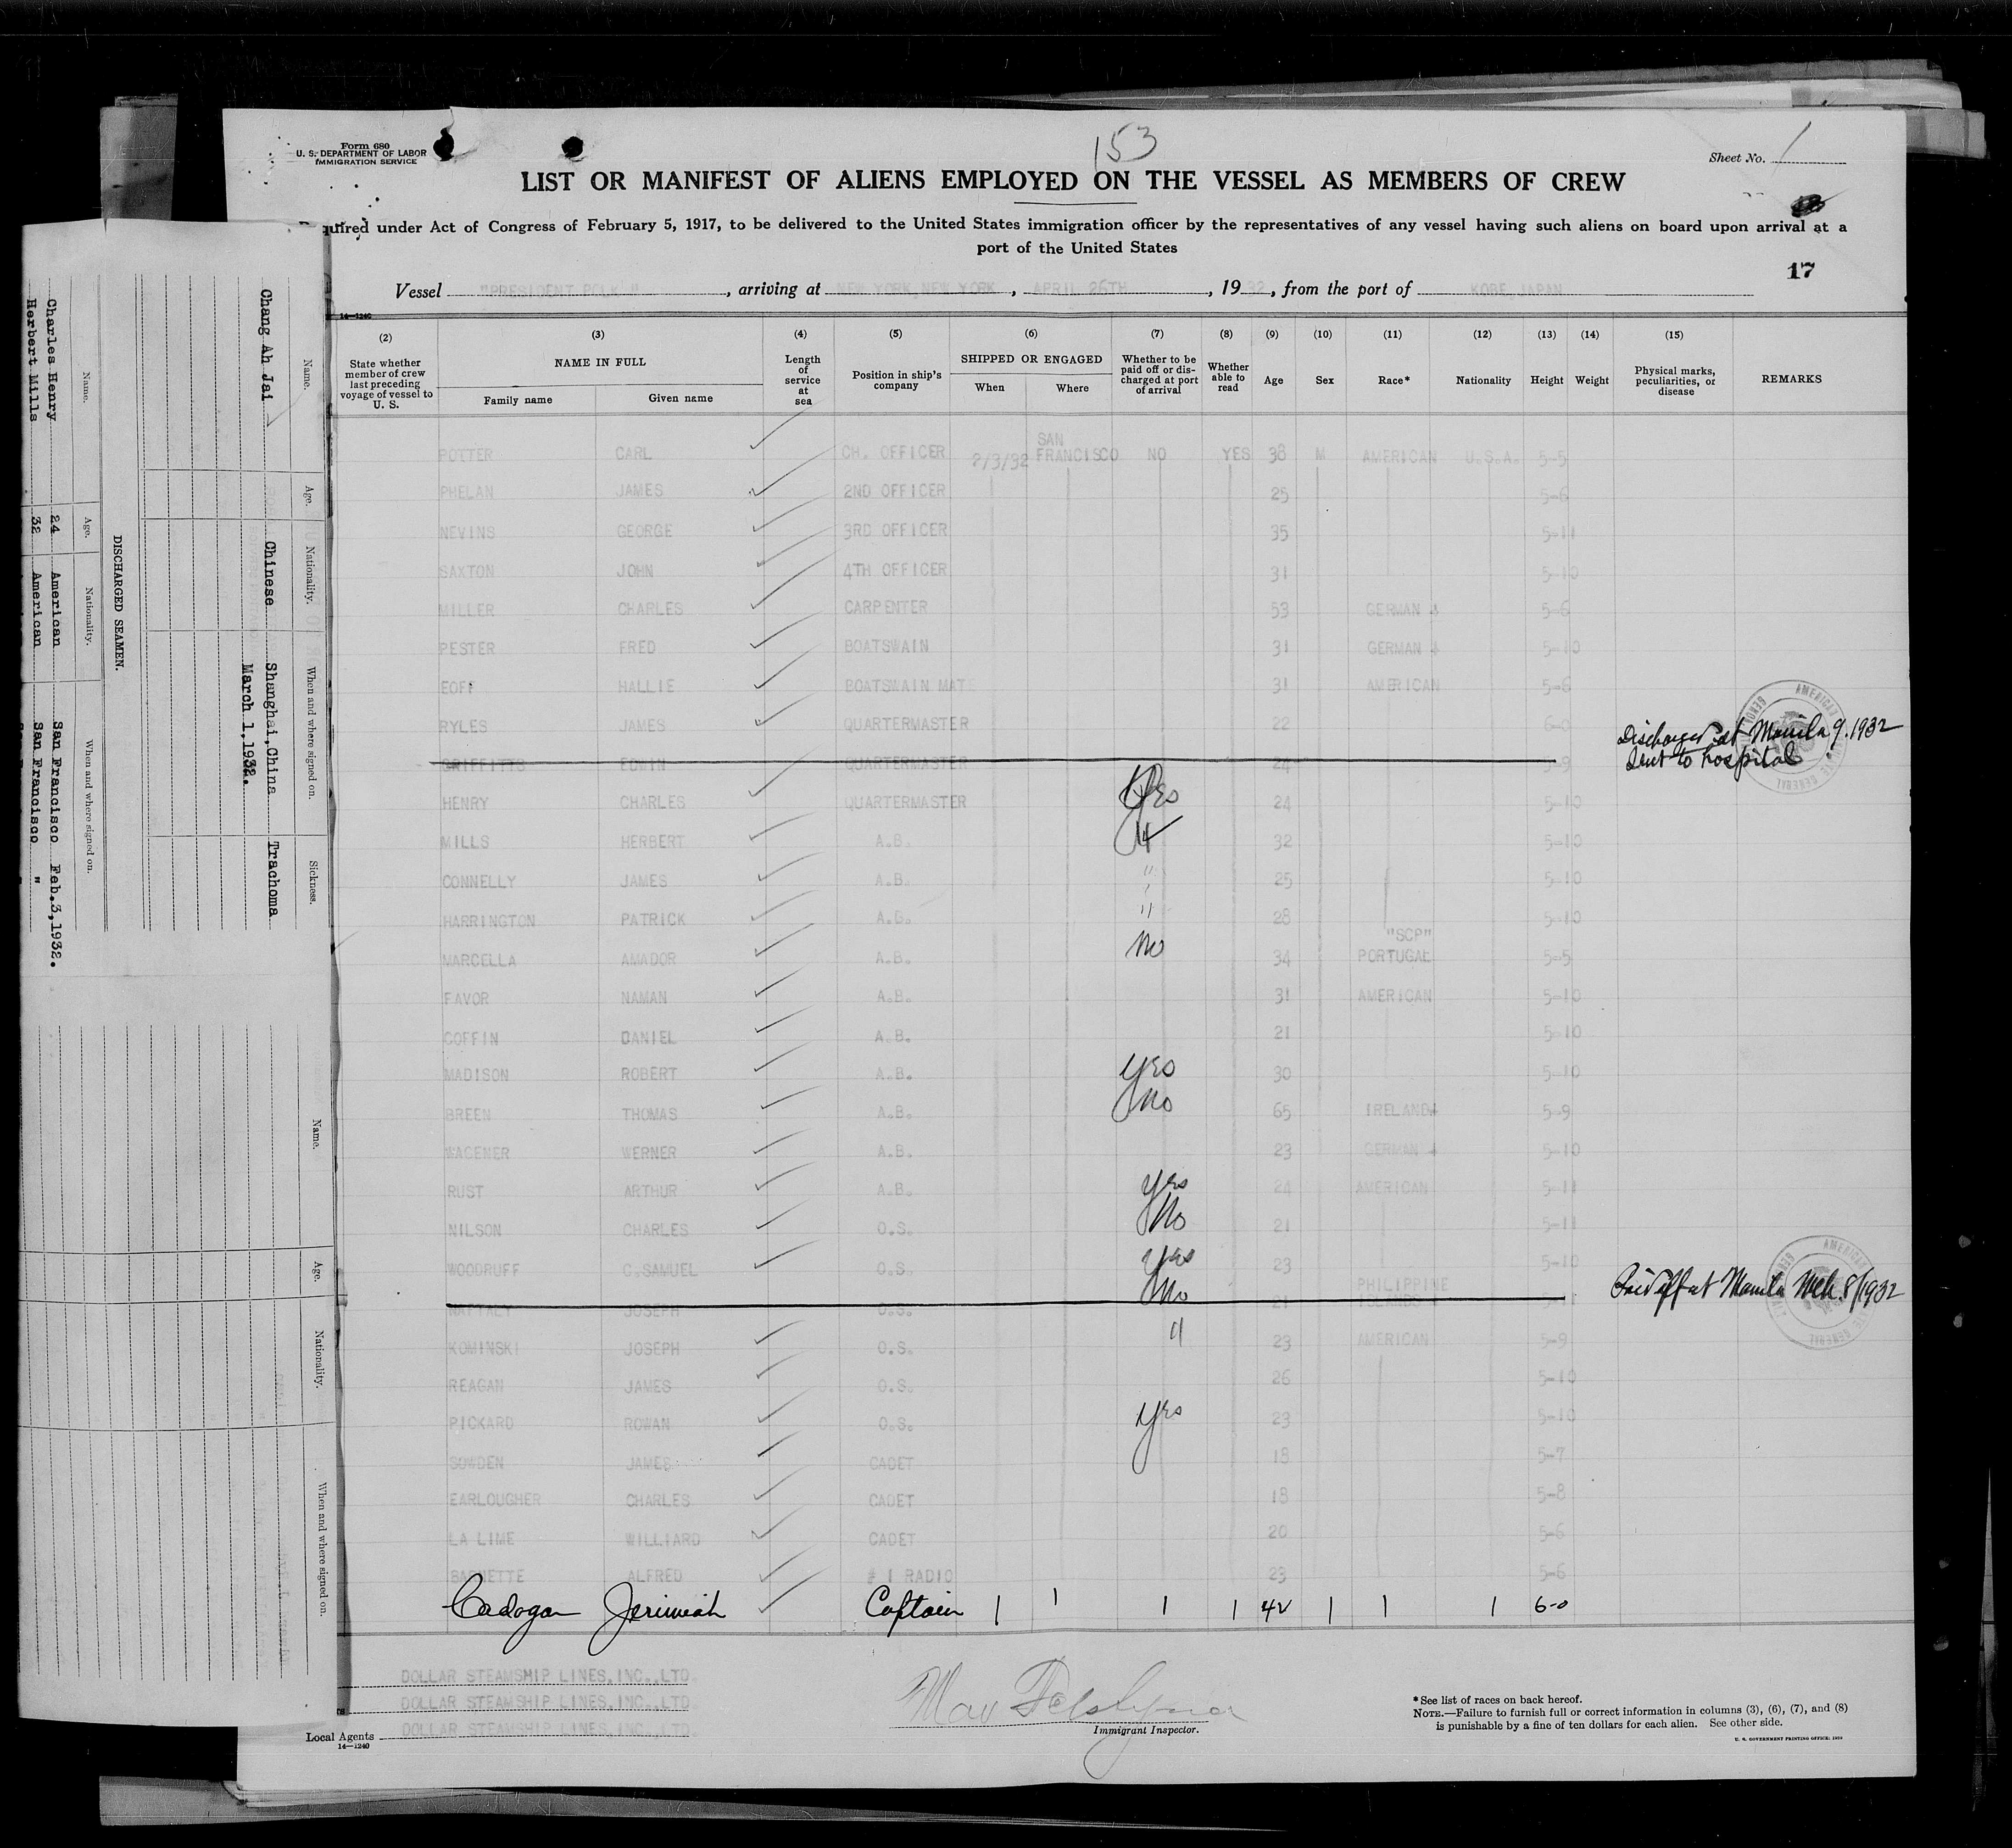 153
Form 680
U. S. DEPARTMENT OF LABOR
IMMIGRATION SERVICE
Sheet No. 1
LIST OR MANIFEST OF ALIENS EMPLOYED ON THE VESSEL AS MEMBERS OF CREW
quired under Act of Congress of February 5, 1917, to be delivered to the United States immigration officer by the representatives of any vessel having such aliens on board upon arrival at a
port of the United States
17
Vessel "PRESIDENT POLK", arriving at NEW YORK, NEW YORK, APRIL 26TH, 1932, from the port of KOBE JAPAN
14—1240
(2) (3) (4) (5) (6) (7) (8) (9) (10) (11) (12) (13) (14) (15)
State whether member of crew last preceding voyage of vessel to U. S.
NAME IN FULL
Family name Given name
Length of service at sea
Position in ship's company
SHIPPED OR ENGAGED
When Where
Whether to be paid off or discharged at port of arrival
Whether able to read
Age Sex Race* Nationality Height Weight
Physical marks, peculiarities, or disease
REMARKS
POTTER CARL CH. OFFICER 2/3/32 SAN FRANCISCO NO YES 38 M AMERICAN U.S.A. 5-5
PHELAN JAMES 2ND OFFICER 25 5-6
NEVINS GEORGE 3RD OFFICER 35 5-11
SAXTON JOHN 4TH OFFICER 31 5-10
MILLER CHARLES CARPENTER 53 GERMAN 5-6
PESTER FRED BOATSWAIN 31 GERMAN 5-10
EOFF HALLIE BOATSWAIN MAT 31 AMERICAN 5-6
RYLES JAMES QUARTERMASTER 22 6-0
GRIFFITTS EDWIN QUARTERMASTER 24 5-9 Discharged at Manila 9. 1932 Sent to hospital
HENRY CHARLES QUARTERMASTER Yes 24 5-10
MILLS HERBERT A.B. 32 5-10
CONNELLY JAMES A.B. " 25 5-10
HARRINGTON PATRICK A.B. " 28 5-10
MARCELLA AMADOR A.B. No 34 "SCP" PORTUGAL 5-5
FAVOR NAMAN A.B. 31 AMERICAN 5-10
COFFIN DANIEL A.B. 21 5-10
MADISON ROBERT A.B. Yes 30 5-10
BREEN THOMAS A.B. No 65 IRELAND 5-9
WAGENER WERNER A.B. 23 GERMAN 5-10
RUST ARTHUR A.B. Yes 24 AMERICAN 5-11
NILSON CHARLES O.S. No 21 5-11
WOODRUFF C.SAMUEL O.S. Yes 23 5-10
JOSEPH O.S. No 21 PHILIPPINE ISLANDS Paid off at Manila Mch. 8/1932
KOMINSKI JOSEPH O.S. " 23 AMERICAN 5-9
REAGAN JAMES O.S. 26 5-10
PICKARD ROWAN O.S. Yes 23 5-10
SOWDEN JAMES CADET 18 5-7
EARLOUGHER CHARLES CADET 18 5-8
LA LIME WILLIARD CADET 20 5-6
BARNETTE ALFRED # 1 RADIO 23 5-6
Cadogan Jerimiah Captain 42 6-0
DOLLAR STEAMSHIP LINES, INC., LTD.
DOLLAR STEAMSHIP LINES, INC., LTD.
Local Agents DOLLAR STEAMSHIP LINES, INC., LTD.
14—1240
Immigrant Inspector.
*See list of races on back hereof.
NOTE.—Failure to furnish full or correct information in columns (3), (6), (7), and (8)
is punishable by a fine of ten dollars for each alien. See other side.
U. S. GOVERNMENT PRINTING OFFICE: 1930
Name. Age. Nationality. When and where signed on. Sickness.
Chang Ah Jai Chinese Shanghai, China Trachoma
March 1, 1932.
DISCHARGED SEAMEN.
Name. Age. Nationality. When and where signed on.
Charles Henry 24 American San Francisco Feb.3,1932.
Herbert Mills 32 American San Francisco "
Name. Age. Nationality. When and where signed on.